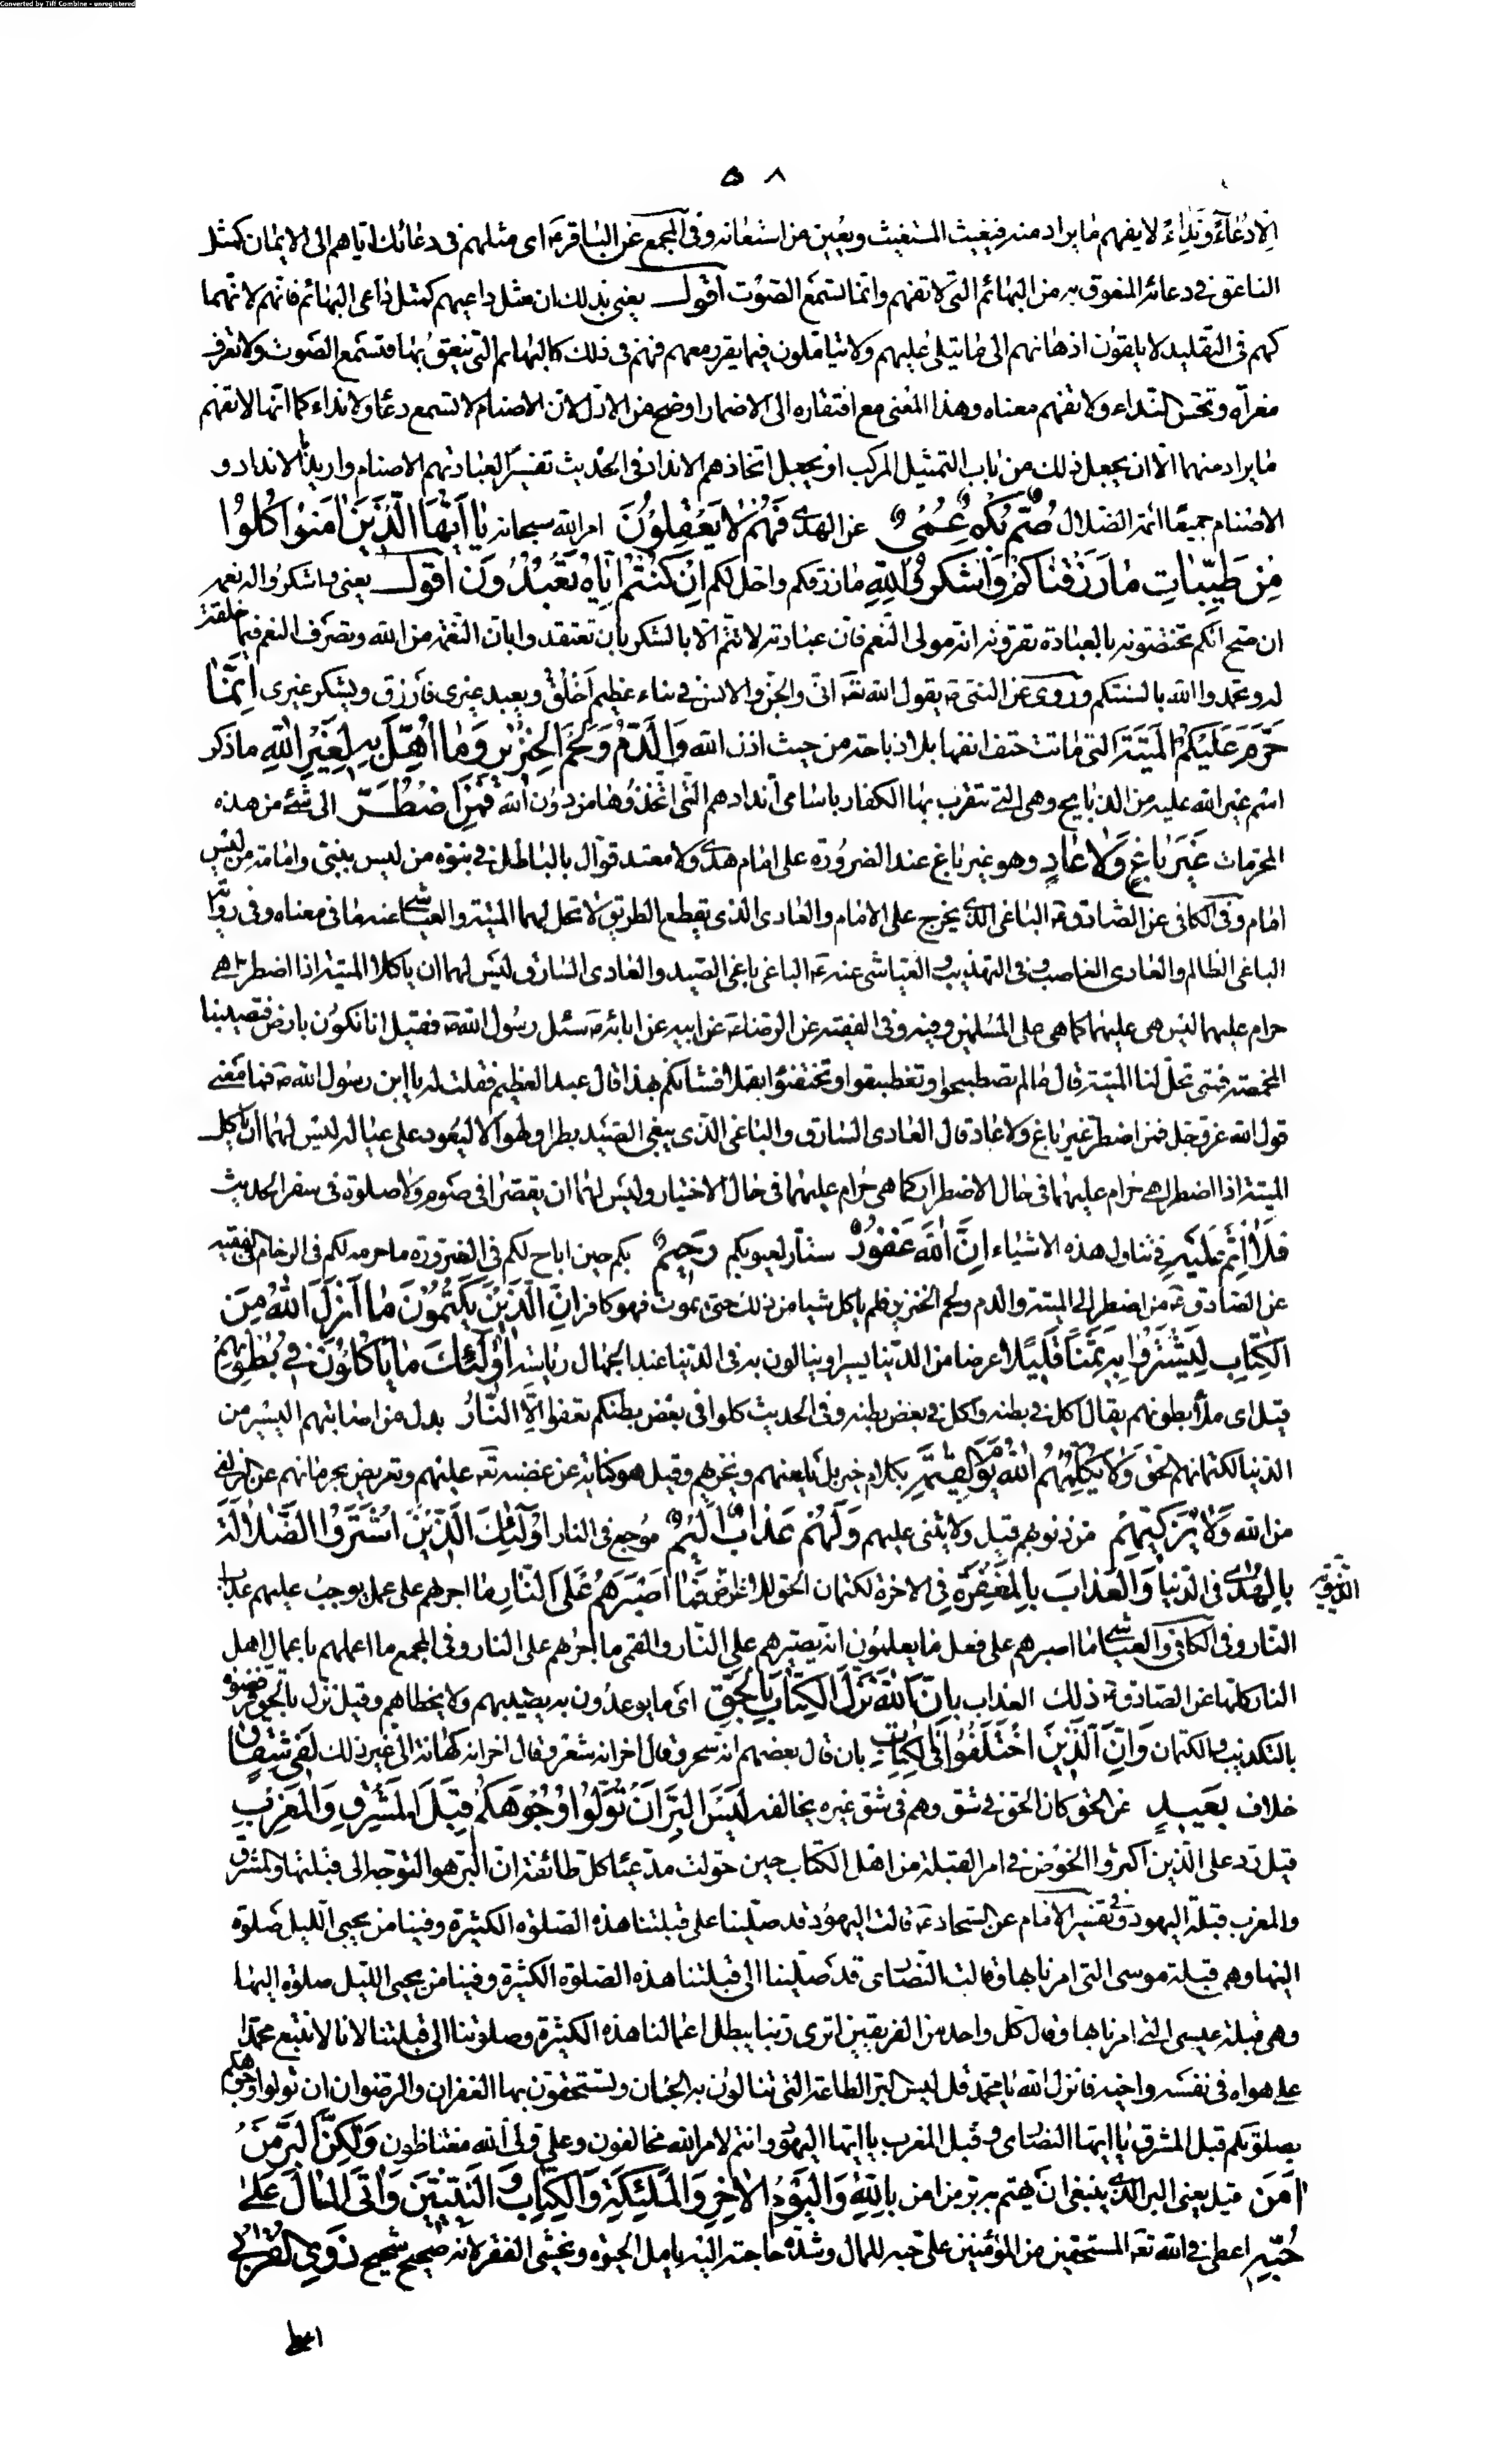 Converted by Tiff Combine - unregistered
٥٨
اِلّا دُعَآءً وَنِدَاءً لا يفهم ما يراد منه فيغيث المستغيث ويعين من استعانه وفي المجمع عن الباقر ع اي مثلهم في دعائك اياهم الى الايمان كمثل
الناعق في دعائه المنعوق به من البهائم التي لا تفهم وانما تسمع الصوت اقول يعني بذلك ان مثل داعيهم كمثل داعي البهائم فانهم لانهما
كهم في التقليد لا يلقون اذهانهم الى ما يتلى عليهم ولا يتاملون فيما يقرر معهم فهم في ذلك كالبهائم التي ينعق بها فتسمع الصوت ولا تعرف
مغزاه وتحس النداء ولا تفهم معناه وهذا المعنى مع افتقاره الى الاضمار اوضح من الاول لان الاصنام لا تسمع دعاء ولا نداء كما انها لا تفهم
ما يراد منهما الا ان يجعل ذلك من باب التمثيل المركب او يجعل اتخاذهم الانداد في الحديث تفسيرا لعبادتهم الاصنام واريد بالانداد و
الاصنام جميعا ائمة الضلال صُمٌّ بُكْمٌ عُمْيٌ عن الهدى فَهُمْ لا يَعْقِلُونَ امر الله سبحانه يا اَيُّهَا الَّذِينَ امَنُوا كُلُوا
مِنْ طَيِّباتِ ما رَزَقْناكُمْ وَاشْكُرُوا لِلّهِ ما رزقكم واحل لكم اِنْ كُنْتُمْ اِيّاهُ تَعْبُدُونَ اقول يعني واشكروا له نعمه
ان صح انكم تختصونه بالعبادة تقرون انه مولى النعم فان عبادته لا تتم الا بالشكر بان تعتقدوا بان النعم من الله وتصرف النعم فيما خلقت
له وتحمدوا الله بالسنتكم وروي عن النبي ص يقول الله تع اني والجن والانس في نباء عظيم اخلق ويعبد غيري فارزق ويشكر غيري اِنَّما
حَرَّمَ عَلَيْكُمُ الْمَيْتَةَ التي ماتت حتف انفها بلا ذباحة من حيث اذن الله وَالدَّمَ وَلَحْمَ الْخِنْزِيرِ وَما اُهِلَّ بِهِ لِغَيْرِ اللهِ ما ذكر
اسم غير الله عليه من الذبايح وهي التي تتقرب بها الكفار باسامي اندادهم التي اتخذوها من دون الله فَمَنِ اضْطُرَّ الى شئ من هذه
المحرمات غَيْرَ باغٍ وَلا عادٍ وهو غير باغ عند الضرورة على امام هدى ولا معتد قوال بالباطل في نبوة من ليس بنبي وامامة من ليس
امام وفي الكافي عن الصادق ع الباغي الذي يخرج على الامام والعادي الذي يقطع الطريق لا تحل لهما الميتة والعياشي عنه ما في معناه وفي رواية
الباغي الظالم والعادي الغاصب وفي التهذيب والعياشي عنه ع الباغي باغي الصيد والعادي السارق ليس لهما ان ياكلا الميتة اذا اضطرا هي
حرام عليهما ليس هي عليهما كما هي على المسلمين وفيه وفي الفقيه عن الرضا ع عن ابيه عن ابائه ص سئل رسول الله ص فقيل انا نكون بارض فتصيبنا
المخمصة فمتى تحل لنا الميتة قال ما لم تصطبحوا او تغتبقوا او تحتفئوا بقلا فشانكم بهذا قال عبد العظيم فقلت له يا ابن رسول الله ص فما معنى
قول الله عز وجل فمن اضطر غير باغ ولا عاد قال العادي السارق والباغي الذي يبغي الصيد بطرا ولهوا لا ليعود على عياله ليس لهما ان ياكلا
الميتة اذا اضطرا هي حرام عليهما في حال الاضطرار كما هي حرام عليهما في حال الاختيار وليس لهما ان يقصرا في صوم ولا صلوة في سفر الحديث
فَلا اِثْمَ عَلَيْهِ في تناول هذه الاشياء اِنَّ اللهَ غَفُورٌ ستار لعيوبكم رَحِيمٌ بكم حين اباح لكم في الضرورة ما حرمه لكم في الرخاء في الفقيه
عن الصادق ع من اضطر الى الميتة والدم ولحم الخنزير فلم ياكل شيئا من ذلك حتى يموت فهو كافر اِنَّ الَّذِينَ يَكْتُمُونَ ما اَنْزَلَ اللهُ مِنَ
الْكِتابِ لِيَشْتَرُوا بِهِ ثَمَناً قَلِيلاً عرضا من الدنيا يسيرا وينالون به في الدنيا عند الجهال رياسة اُولئِكَ ما يَأْكُلُونَ فِي بُطُونِهِمْ
قيل اي ملأ بطونهم يقال اكل في بطنه واكل في بعض بطنه وفي الحديث كلوا في بعض بطنكم تعفوا اِلَّا النّارَ بدل من اصابتهم اليسير من
الدنيا لكتمانهم الحق وَلا يُكَلِّمُهُمُ اللهُ يَوْمَ الْقِيمَةِ بكلام خير بل بان يلعنهم ويخزيهم وقيل هو كناية عن غضبه تع عليهم وتعريض بحرمانهم عن الزلفى
من الله وَلا يُزَكِّيهِمْ من ذنوبهم قيل ولا يثني عليهم وَلَهُمْ عَذابٌ اَلِيمٌ موجع في النار اُولئِكَ الَّذِينَ اشْتَرَوُا الضَّلالَةَ
بِالْهُدى في الدنيا وَالْعَذابَ بِالْمَغْفِرَةِ في الاخرة لكتمان الحق للاغراض الدنيوية فَما اَصْبَرَهُمْ عَلَى النّارِ ما اجرهم على عمل يوجب عليهم عذاب
النار وفي الكافي والعياشي ما اصبرهم على فعل ما يعلمون انه يصيرهم على النار والقمي ما اجرهم على النار وفي المجمع ما اعملهم باعمال اهل
النار كلها عن الصادق ع ذلِكَ العذاب بِاَنَّ اللهَ نَزَّلَ الْكِتابَ بِالْحَقِّ اي ما يوعدون به يصيبهم ولا يخطاهم وقيل نزل بالحق فرفضوه
بالتكذيب والكتمان وَاِنَّ الَّذِينَ اخْتَلَفُوا فِي الْكِتابِ بان قال بعضهم انه سحر وقال اخر انه شعر وقال اخر انه كهانة الى غير ذلك لَفِي شِقاقٍ
خلاف بَعِيدٍ عن الحق كان الحق في شق وهم في شق غيره يخالفه لَيْسَ الْبِرَّ اَنْ تُوَلُّوا وُجُوهَكُمْ قِبَلَ الْمَشْرِقِ وَالْمَغْرِبِ
قيل رد على الذين اكثروا الخوض في امر القبلة من اهل الكتاب حين حولت مدعيا كل طائفة ان البر هو التوجه الى قبلتها والمشرق
والمغرب قبلة اليهود وفي تفسير الامام عن السجاد ع قالت اليهود قد صلينا على قبلتنا هذه الصلوة الكثيرة وفينا من يحيي الليل صلوة
اليها وهي قبلة موسى التي امرنا بها وقالت النصارى قد صلينا الى قبلتنا هذه الصلوة الكثيرة وفينا من يحيي الليل صلوة اليها
وهي قبلة عيسى التي امرنا بها وقال كل واحد من الفريقين اترى ربنا يبطل اعمالنا هذه الكثيرة وصلوتنا الى قبلتنا لانا لا نتبع محمدا
على هواه في نفسه واخيه فانزل الله يا محمد قل ليس البر الطاعة التي تنالون به الجنان وتستحقون بها الغفران والرضوان ان تولوا وجوهكم
بصلوتكم قبل المشرق يا ايها النصارى وقبل المغرب يا ايها اليهود وانتم لامر الله مخالفون وعلى ولي الله مغتاظون وَلكِنَّ الْبِرَّ مَنْ
امَنَ قيل يعني البر الذي ينبغي ان يهتم به بر من امن بِاللهِ وَالْيَوْمِ الْاخِرِ وَالْمَلئِكَةِ وَالْكِتابِ وَالنَّبِيِّينَ وَاتَى الْمالَ عَلى
حُبِّهِ اعطى في الله تع المستحقين من المؤمنين على حبه للمال وشدة حاجته اليه يامل الحيوة ويخشى الفقر لانه صحيح شحيح ذَوِي الْقُرْبى